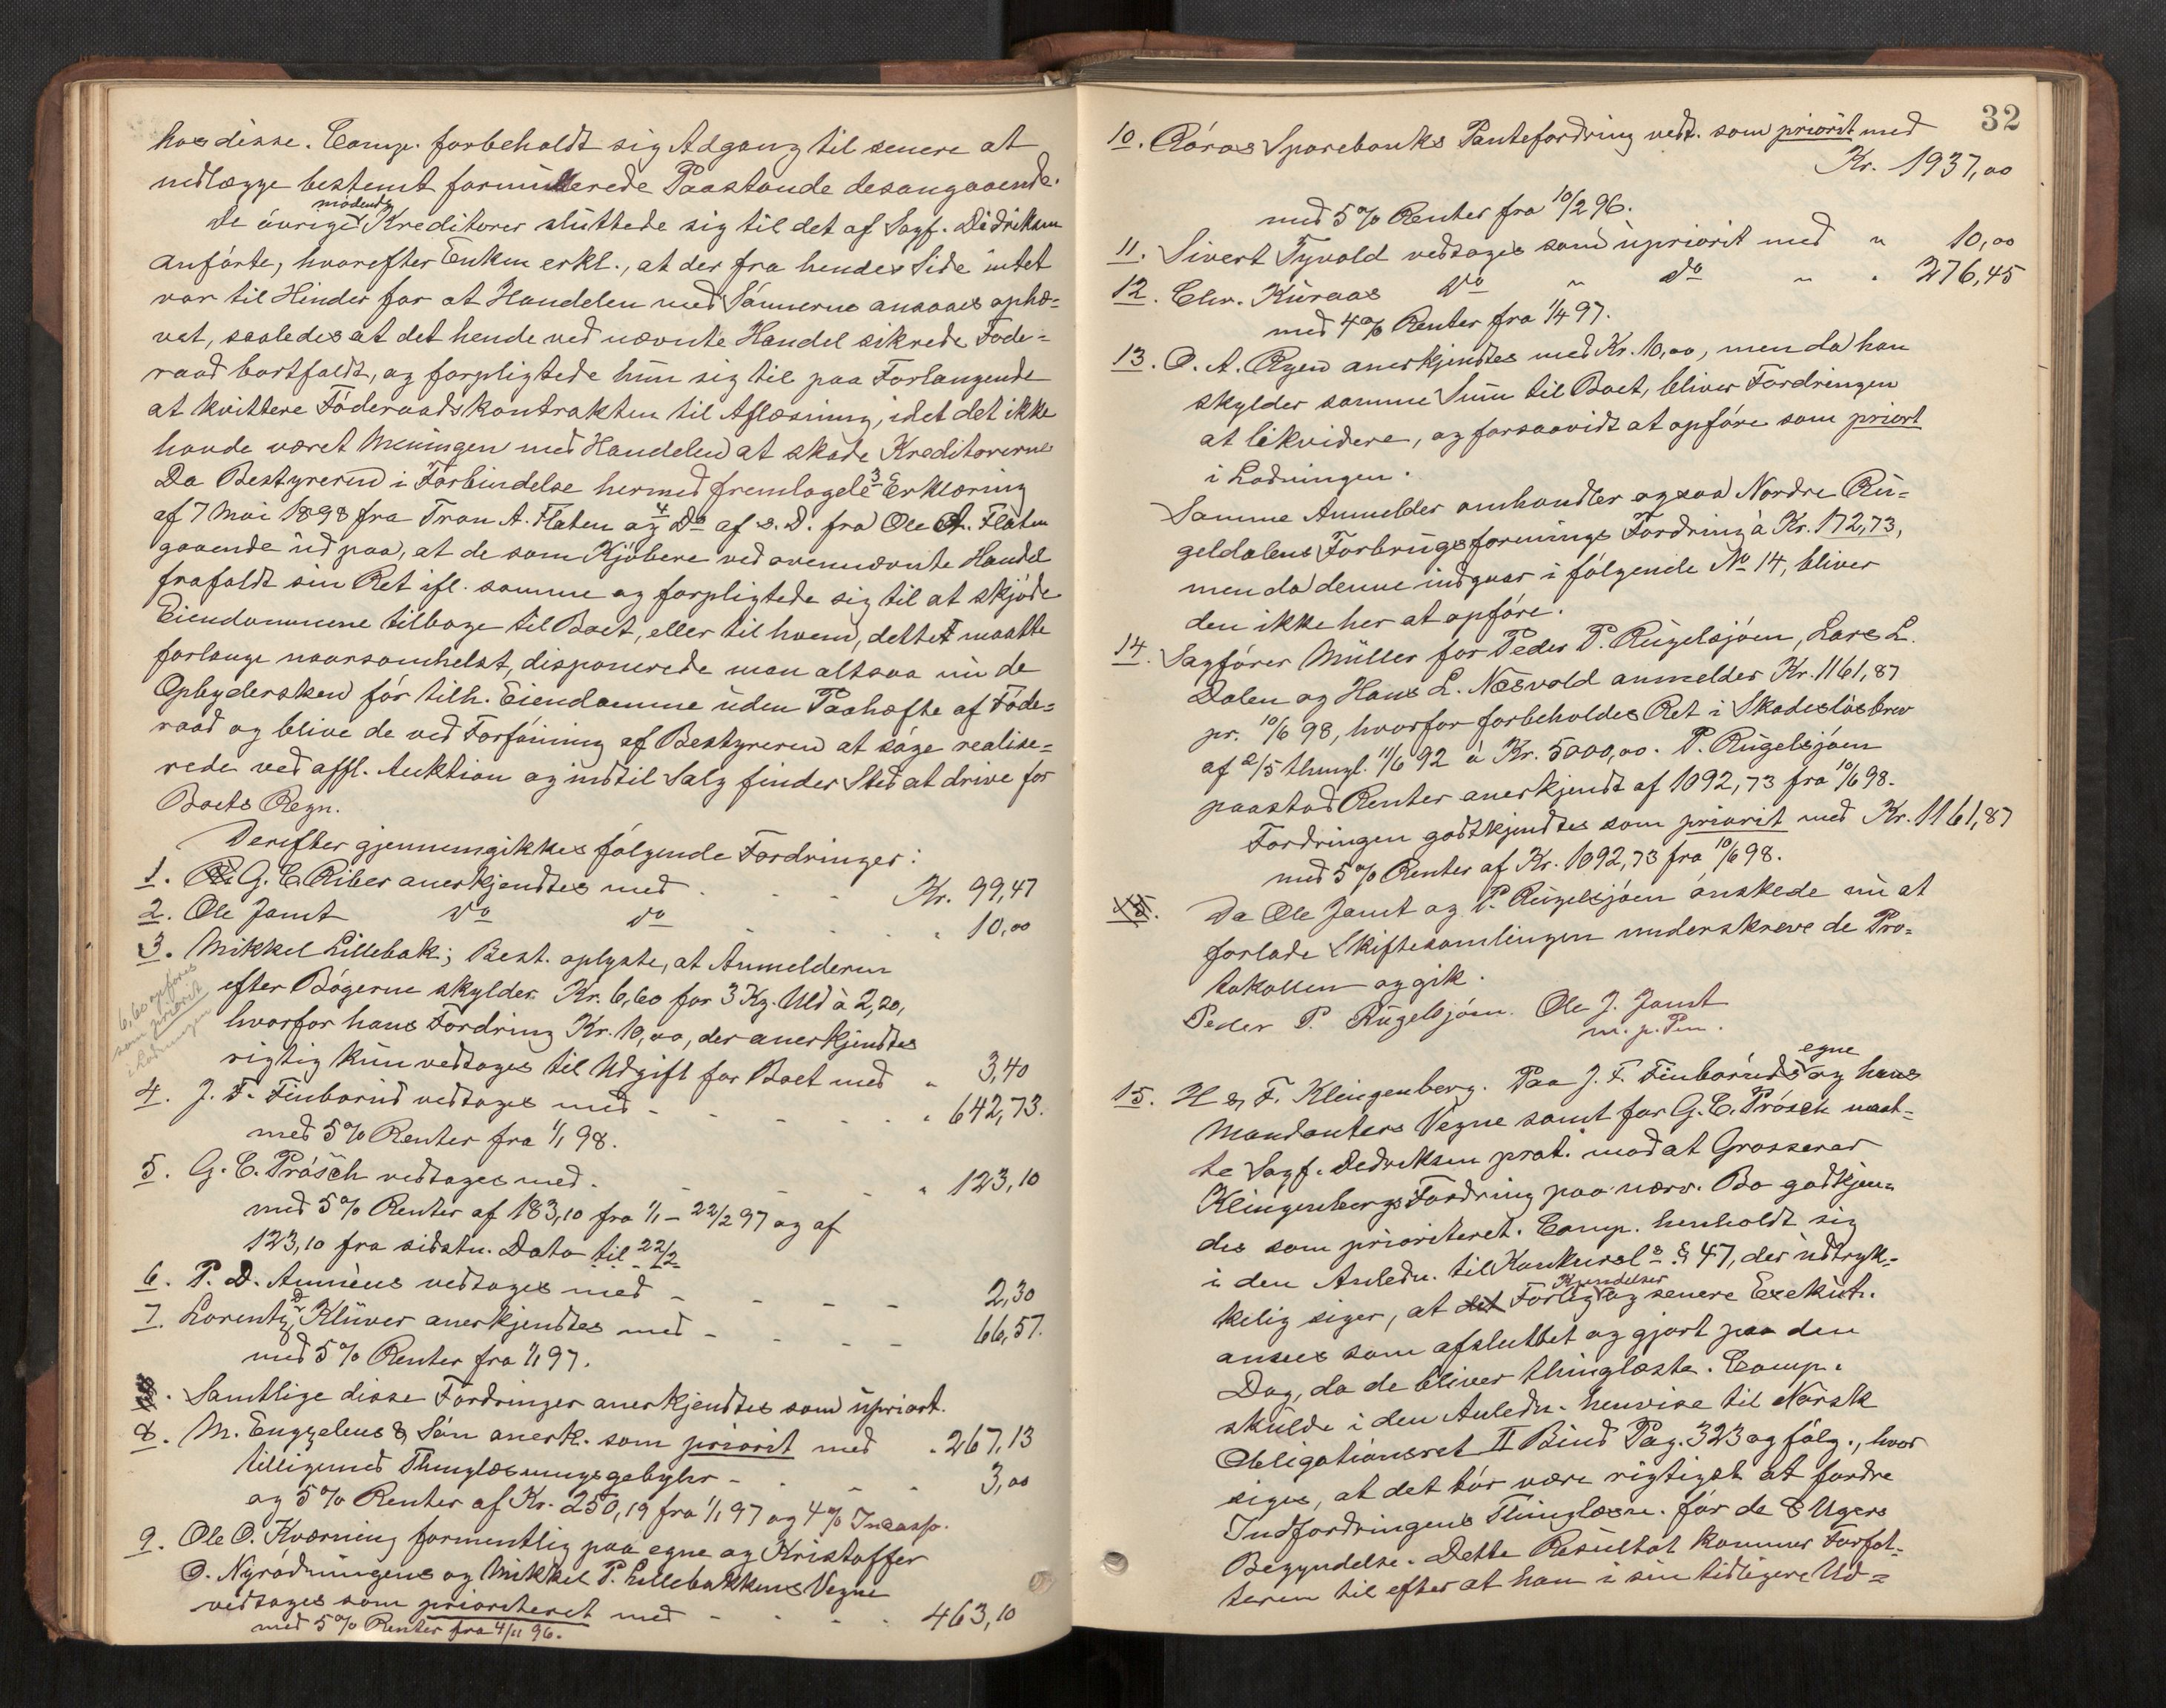 hos disse. Comp. forbeholdt sig Adgang til senere at
nedlægge bestemt formulerede Paastande desangaaende.
De øvrige mødende Kreditorer sluttede sig til det af Sagf. Didriksen
anførte, hvorefter Enken erkl., at der fra hendes Side intet
var til Hinder for at Handelen med Sønnerne ansaaes ophæ-
vet, saaledes at det hende ved nævnte Handel sikrede Føde-
raad bortfaldt, og forpligtede hun sig til paa Forlangende
at kvittere Føderaadskontrakten til Aflæsning, idet det ikke
havde været Meningen med Handelen at skade Kreditorerne
Da Bestyreren i Forbindelse hermed fremlagde 3 Erklæring
af 7 Mai 1898 fra Tron A. Flaten og 4 Do af s. D. fra Ole A. Flaten
gaaende ud paa, at de som Kjøbere ved ovennævnte Handel
frafaldt sin Ret ifl. samme og forpligtede sig til at skjøde
Eiendommene tilbage til Boet, eller til hvem, dettet maatte
forlange naarsomhelst, disponerede man altsaa nu de
Opbydersken før tilh. Eiendomme uden Paahæfte af Føde-
raad og blive de ved Forføining af Bestyreren at søge realise-
rede ved offl. Auktion og indtil Salg finder Sted at drive for
Boets Regn.
Derefter gjennemgikkes følgende Fordringer:
1. G. C. Riber anerkjendtes med - - Kr. 99,47
2. Ole Jamt do do - - - " 10,00
3. Mikkel Lillebak; Best. oplyste, at Anmelderen
efter Bøgerne skylder Kr. 6,60 for 3 Kg. Uld à 2,20,
hvorfor hans Fordring Kr. 10,00, der anerkjendtes
rigtig kun vedtages til Udgift for Boet med " 3,40
6,60 opføres
som priorit
i Ladningen
4. J. F. Finborud vedtages med - - - - " 642,73.
med 5 % Renter fra 1/1 98.
5. G. C. Prøsch vedtages med - - - - " 123,10
med 5 % Renter af 183,10 fra 1/1 - 22/2 97 og af
123,10 fra sidstn. Dato til 22/2
6. P. D. Annæus vedtages med - - - - 2,30
7. Lorentz D. Klüver anerkjendtes med - - - 66,57.
med 5 % Renter fra 1/1 97.
Samtlige disse Fordringer anerkjendtes som upriort.
8. M. Enggelens & Søn anerk. som priorit med " 267,13
tilligemed Thinglæsningsgebyhr - - - 3,00
og 5 % Renter af Kr. 250,19 fra 1/1 97 og 4 % Incasso.
9. Ole O. Kværning formentlig paa egne og Kristoffer
O. Nyrødningens og Mikkel P. Lillebakkens Vegne
vedtages som prioriteret med - - - - 463,10
med 5 % Renter fra 4/11 96.
32
10. Røros Sparebanks Pantefordring vedt. som priorit med
Kr. 1937,00
med 5 % Renter fra 10/2 96.
11. Sivert Tyvold vedtages som upriorit med " 10,00
12. Chr. Kuraas do " do " " 276,45
med 4 % Renter fra 1/4 97.
13. O. A. Ryen anerkjendtes med Kr. 10,00, men da han
skylder samme Sum til Boet, bliver Fordringen
at likvidere, og forsaavidt at opføre som priort
i Ladningen.
Samme Anmelder omhandler ogsaa Nordre Ru-
geldalens Forbrugsforenings Fordring à Kr. 172,73,
men da denne indgaar i følgende No 14, bliver
den ikke her at opføre.
14. Sagfører Müller for Peder P. Rugelsjøen, Lars L.
Dalen og Hans L. Næsvold anmelder Kr. 1161,87
pr. 10/6 98, hvorfor forbeholdes Ret i Skadesløsbrev
af 2/5 thingl. 11/6 92 à Kr. 5000,00. P. Rugelsjøen
paastod Renter anerkjendt af 1092,73 fra 10/6 98.
Fordringen godtkjendtes som priorit med Kr. 1161,87
med 5 % Renter af Kr. 1092,73 fra 10/6 98.
Da Ole Jamt og P. Rugelsjøen ønskede nu at
forlade Skiftesamlingen underskreve de Pro-
tokollen og gik.
Peder P. Rugelsjøen. Ole J. Jamt
m. p. Pen.
15. H & F. Klingenberg. Paa J. F. Finboruds egne og hans
Mandanters Vegne samt for G. C. Prøsch næst-
te Sagf. Dedriksen prot. mod at Grosserer
Klingenbergs Fordring paa nærv. Bo godkjen-
des som prioriteret. Comp. henholdt sig
i den Anledn. til Konkurslo § 47, der udtryk-
kelig siger, at Forlig Kjendelser og senere Exekut.
ansees som afsluttet og gjort paa den
Dag, da de bliver thinglæste. Comp.
skulde i den Anledn. henvise til Norsk
Obligationsret II Bind Pag. 323 og følg., hvor
siges, at det tør være rigtigst at fordre
Indfordringens Thinglæsn. før de 8 Ugers
Begyndelse. Dette Resultat kommer Forfat-
teren til efter at han i sin tidligere Ud-